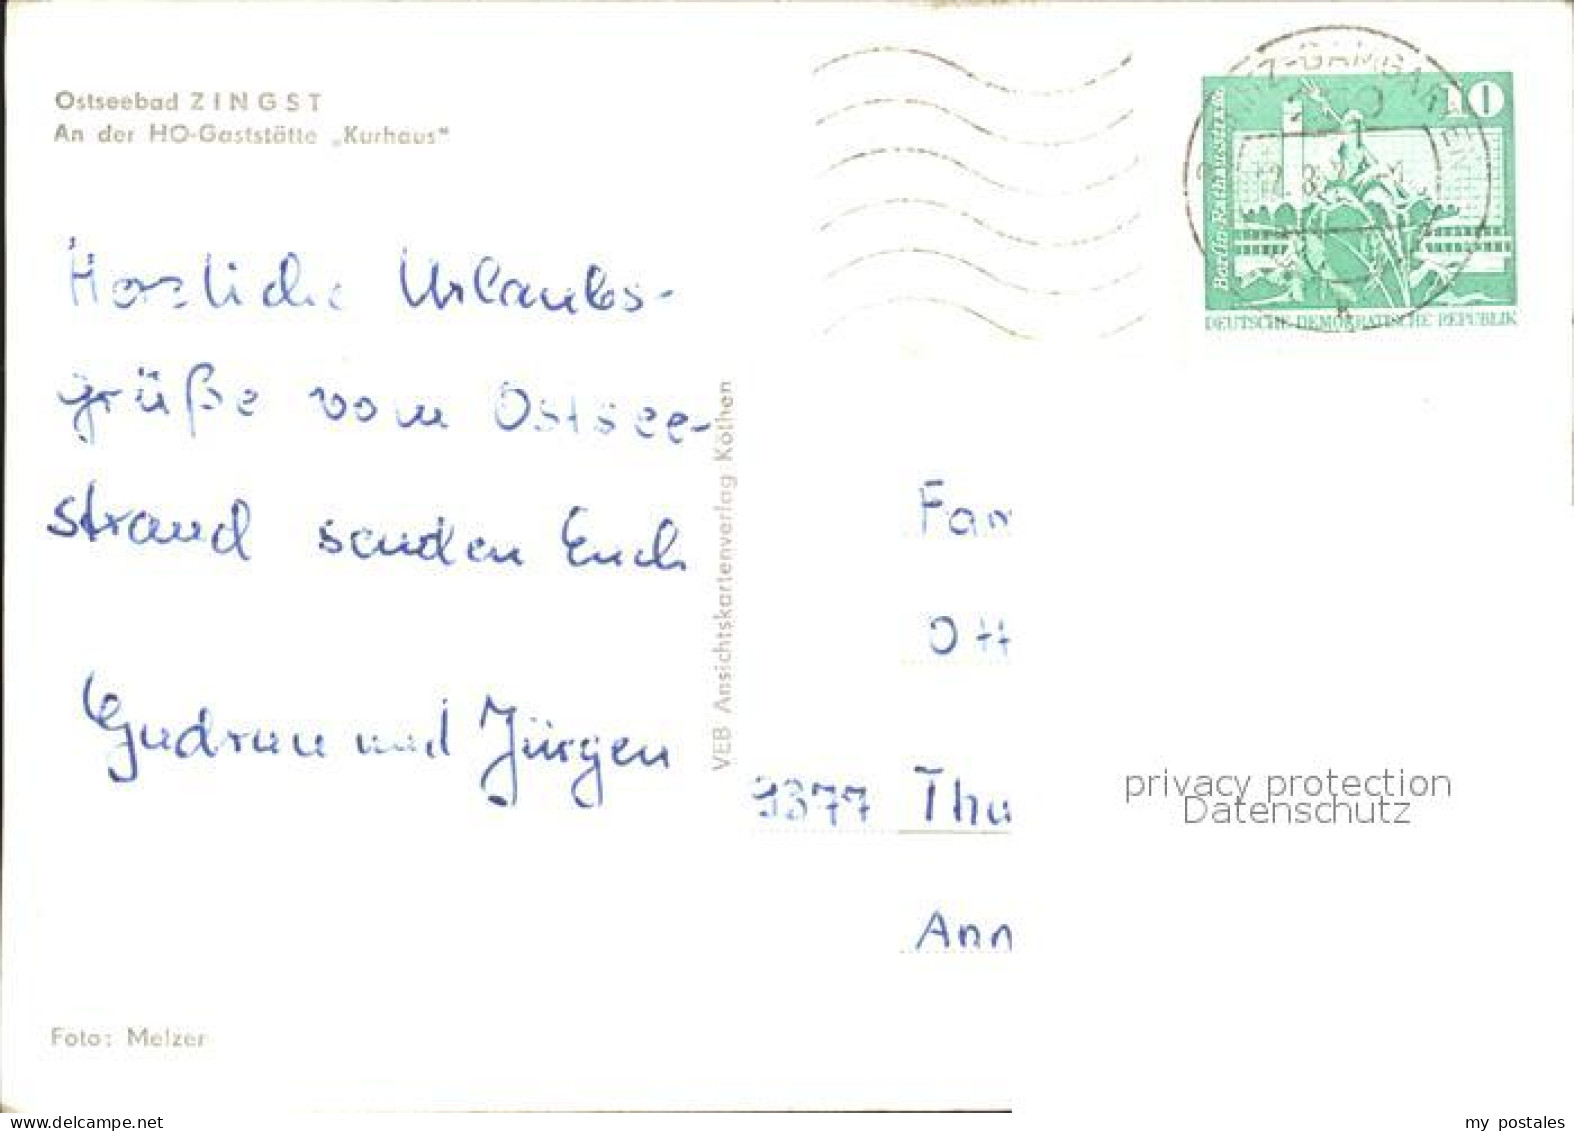 Ostseebad ZINGST
An der HO-Gaststätte „Kurhaus"
Herzliche Urlaubs-
grüße vom Ostsee-
strand senden Euch
Gudrun und Jürgen
Foto: Melzer
VEB Ansichtskartenverlag Köthen
10
Berlin, Rathausstraße
DEUTSCHE DEMOKRATISCHE REPUBLIK
Fam
Ott
9377 Thu
Ann
privacy protection
Datenschutz
www.delcampe.net
my postales